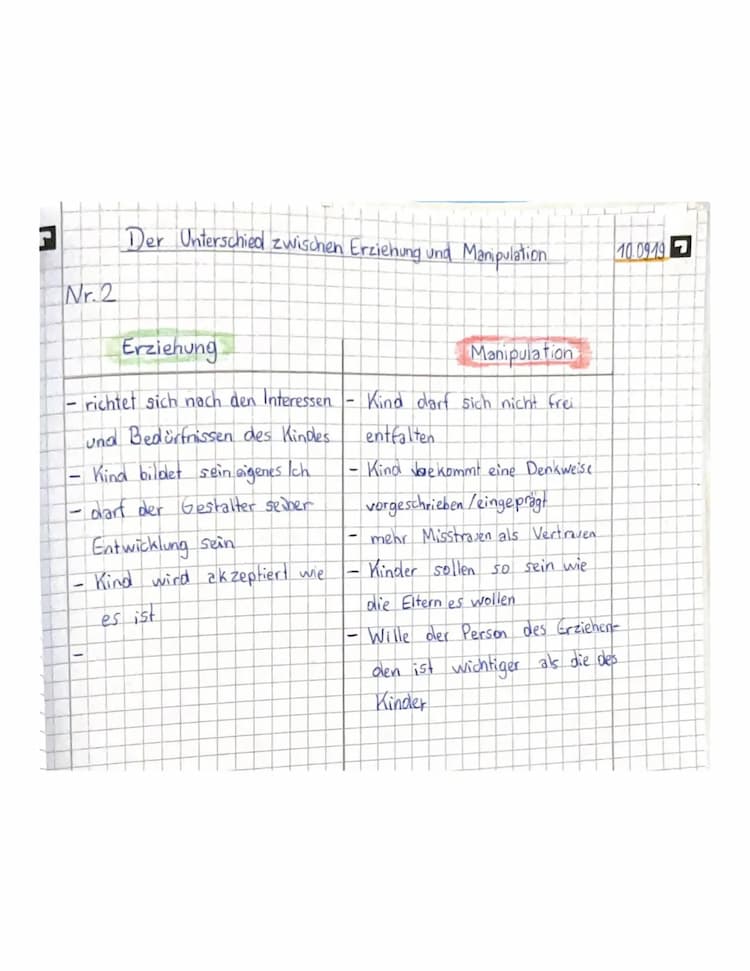 Der Unterschied zwischen Erziehung und Manipulation 10.09.19
Nr. 2
Erziehung
- richtet sich nach den Interessen
und Bedürfnissen des Kindes
- Kind bildet sein eigenes Ich
- darf der Gestalter seiner
Entwicklung sein
- Kind wird akzeptiert wie
es ist
-
Manipulation
- Kind darf sich nicht frei
entfalten
- Kind bekommt eine Denkweise
vorgeschrieben/eingeprägt
- mehr Misstrauen als Vertrauen
- Kinder sollen so sein wie
die Eltern es wollen
- Wille der Person des Erziehen-
den ist wichtiger als die des
Kinder